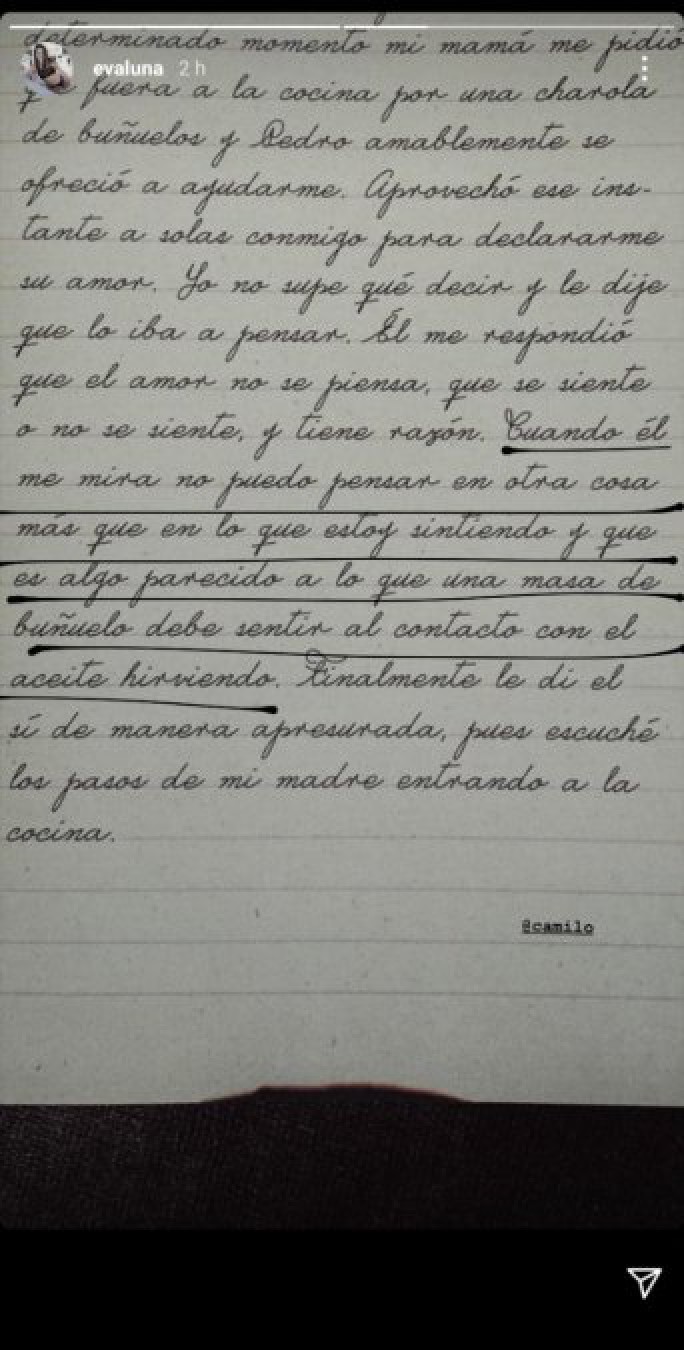 determinado momento mi mamá me pidió
evaluna 2 h
fuera a la cocina por una charola
de buñuelos y Pedro amablemente se
ofreció a ayudarme. Aprovechó ese ins-
tante a solas conmigo para declararme
su amor. Yo no supe qué decir y le dije
que lo iba a pensar. Él me respondió
que el amor no se piensa, que se siente
o no se siente, y tiene razón. Cuando él
me mira no puedo pensar en otra cosa
más que en lo que estoy sintiendo y que
es algo parecido a lo que una masa de
buñuelo debe sentir al contacto con el
aceite hirviendo. Finalmente le di el
sí de manera apresurada, pues escuché
los pasos de mi madre entrando a la
cocina.
@camilo